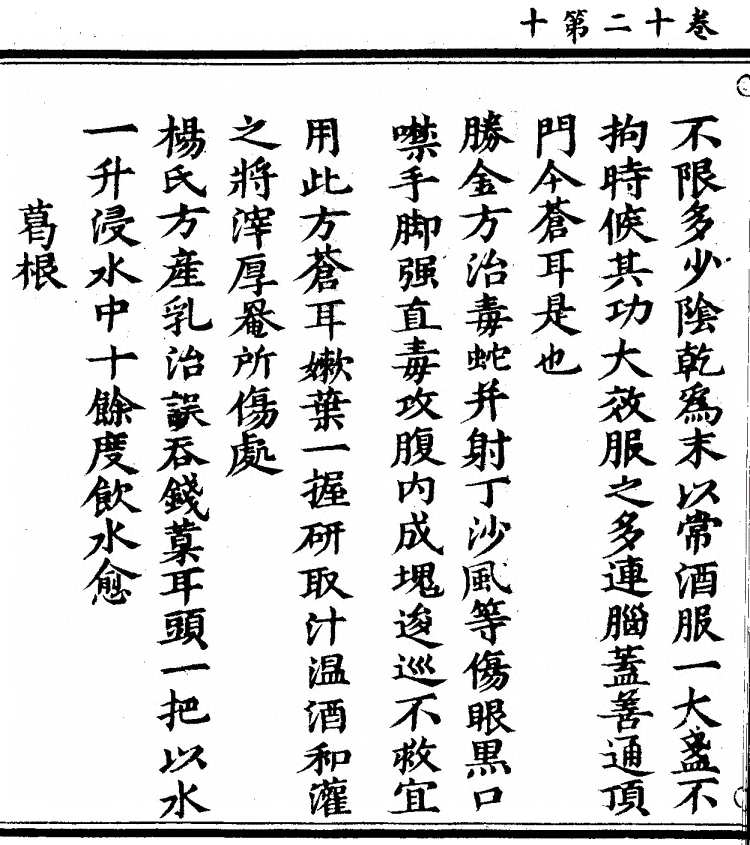 卷十二第十
不限多少陰乾爲末以常酒服一大盞不
拘時候其功大效服之多連腦蓋善通頂
門今蒼耳是也
勝金方治毒蛇并射丁沙風等傷眼黒口
噤手脚强直毒攻腹内成塊逡巡不救宜
用此方蒼耳嫩葉一握研取汁温酒和灌
之將滓厚罨所傷處
楊氏方産乳治誤吞錢菒耳頭一把以水
一升浸水中十餘度飲水愈
葛根